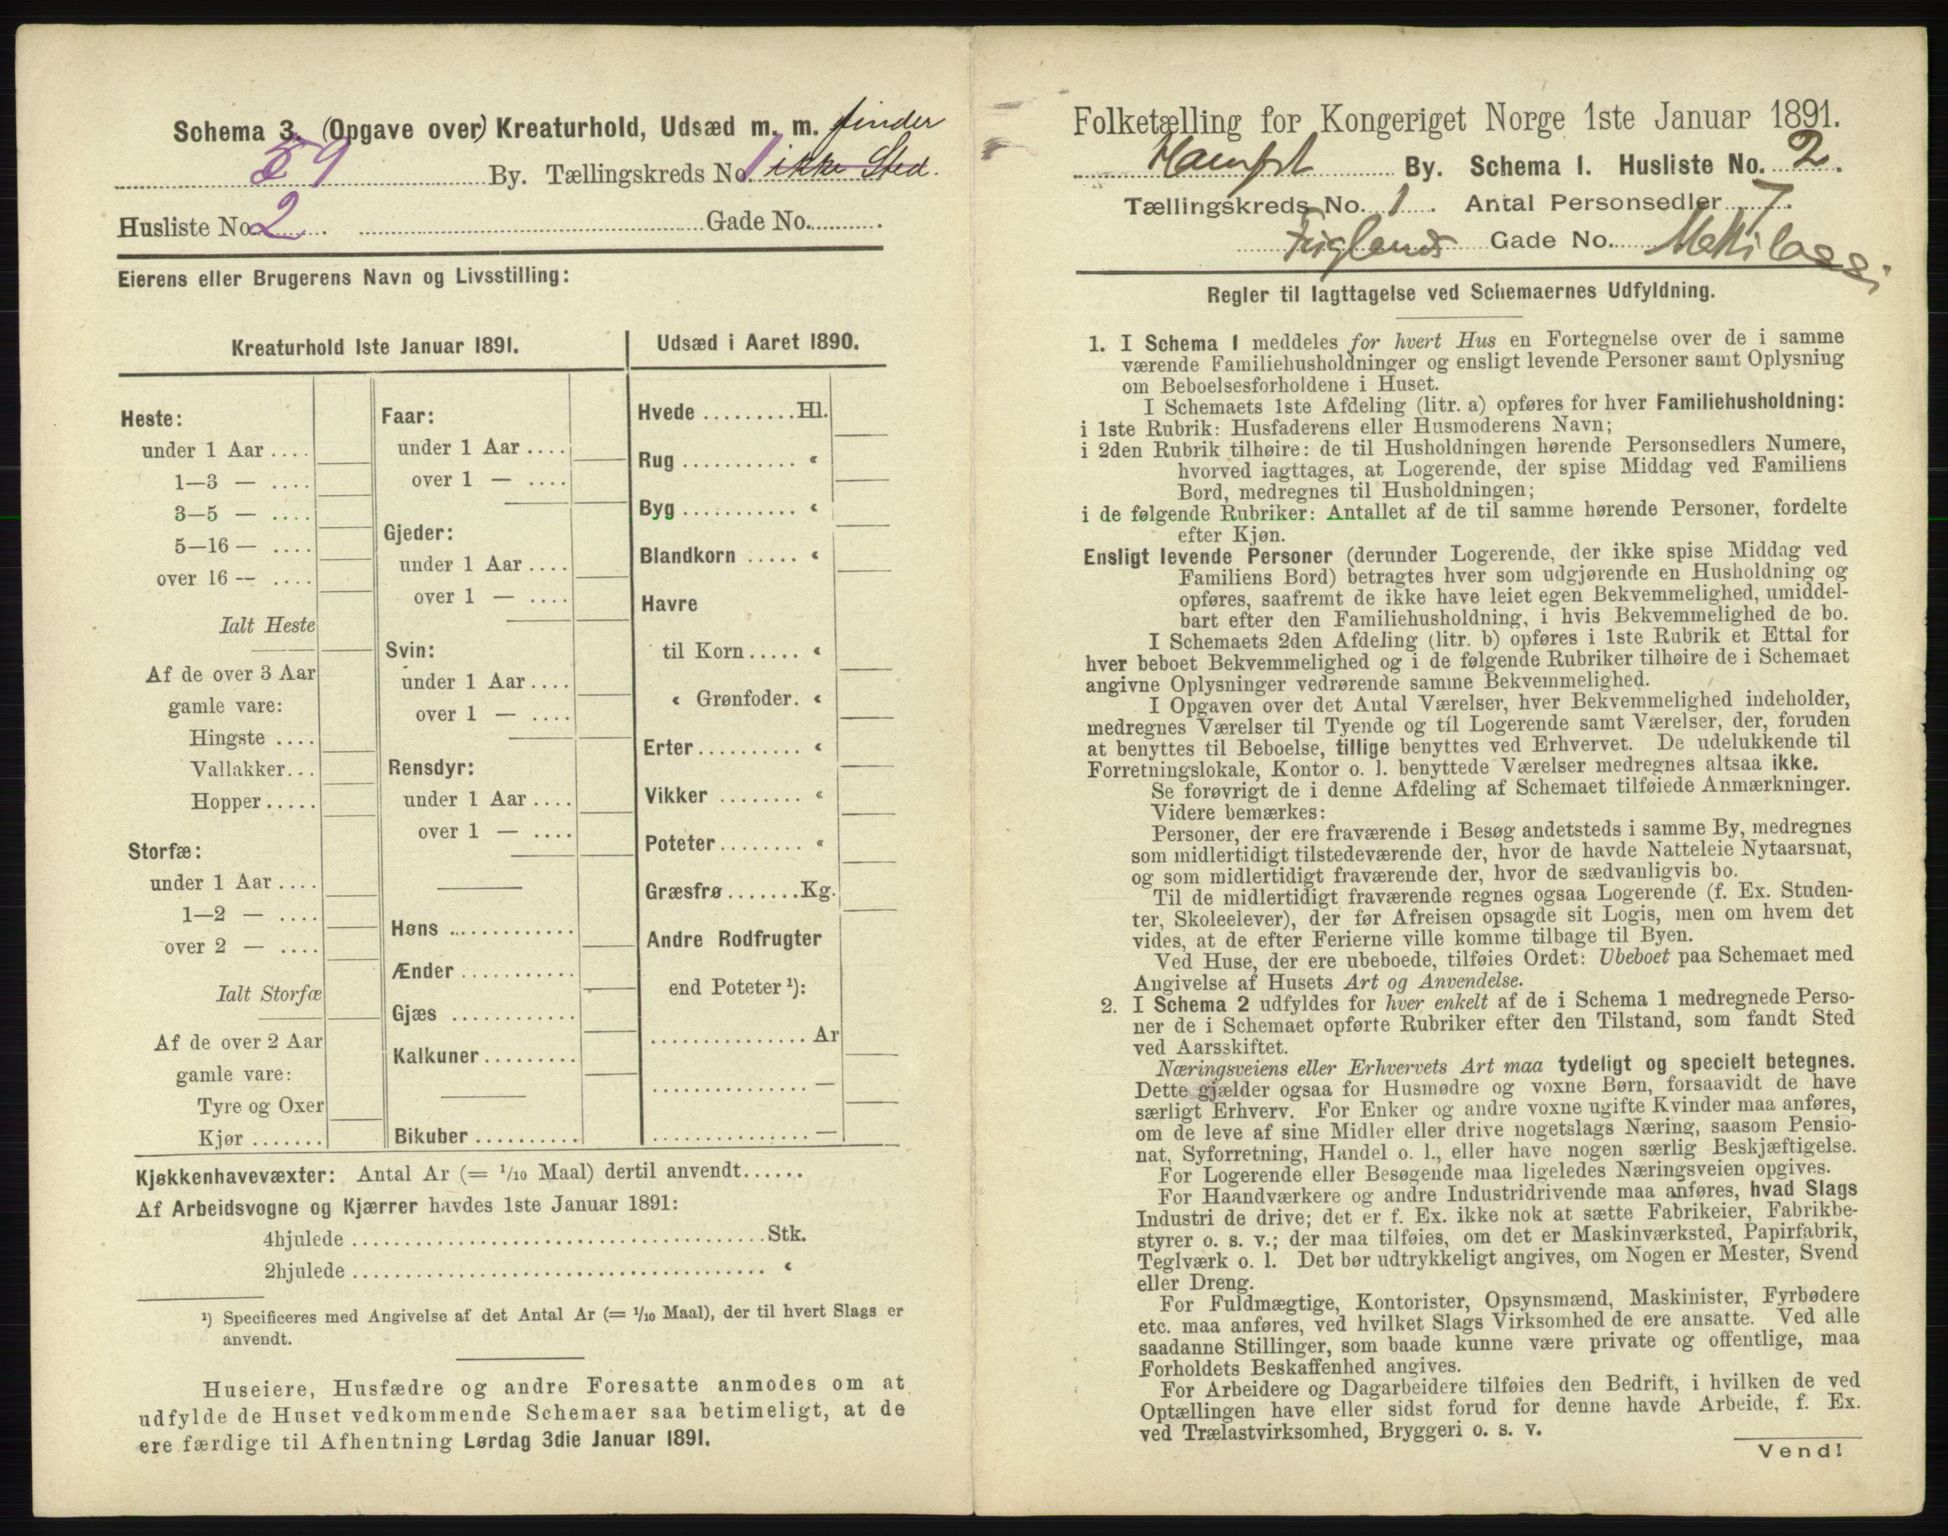 Schema 3. (Opgave over) Kreaturhold, Udsæd m. m. finder
59 By. Tællingskreds No. 1 ikke Sted.
Husliste No. 2 . Gade No.
Eierens eller Brugerens Navn og Livsstilling:
Kreaturhold 1ste Januar 1891.
Heste:
under 1 Aar ....
1—3 — ....
3—5 — ....
5—16 — ....
over 16 — ....
Ialt Heste
Af de over 3 Aar
gamle vare:
Hingste ....
Vallakker...
Hopper .....
Storfæ:
under 1 Aar ....
1—2 — ....
over 2 — ....
Ialt Storfæ
Af de over 2 Aar
gamle vare:
Tyre og Oxer
Kjør .......
Faar:
under 1 Aar ....
over 1 — ....
Gjeder:
under 1 Aar ....
over 1 — ....
Svin:
under 1 Aar ....
over 1 — ....
Rensdyr:
under 1 Aar ....
over 1 — ....
Høns ............
Ænder ...........
Gjæs ............
Kalkuner .........
Bikuber ..........
Udsæd i Aaret 1890.
Hvede .........Hl.
Rug ........... «
Byg ........... «
Blandkorn ..... «
Havre
til Korn..... «
« Grønfoder. «
Erter .......... «
Vikker ........ «
Poteter ........ «
Græsfrø .......Kg.
Andre Rodfrugter
end Poteter ¹):
............... Ar
............... —
............... —
Kjøkkenhavevæxter: Antal Ar (= 1/10 Maal) dertil anvendt......
Af Arbeidsvogne og Kjærrer havdes 1ste Januar 1891:
4hjulede ........................................Stk.
2hjulede ........................................ «
¹) Specificeres med Angivelse af det Antal Ar (= 1/10 Maal), der til hvert Slags er
anvendt.
Huseiere, Husfædre og andre Foresatte anmodes om at
udfylde de Huset vedkommende Schemaer saa betimeligt, at de
ere færdige til Afhentning Lørdag 3die Januar 1891.
Folketælling for Kongeriget Norge 1ste Januar 1891.
By. Schema 1. Husliste No. 2.
Tællingskreds No. 1. Antal Personsedler 7.
Gade No.
Regler til Iagttagelse ved Schemaernes Udfyldning.
1. I Schema 1 meddeles for hvert Hus en Fortegnelse over de i samme
værende Familiehusholdninger og ensligt levende Personer samt Oplysning
om Beboelsesforholdene i Huset.
I Schemaets 1ste Afdeling (litr. a) opføres for hver Familiehusholdning:
i 1ste Rubrik: Husfaderens eller Husmoderens Navn;
i 2den Rubrik tilhøire: de til Husholdningen hørende Personsedlers Numere,
hvorved iagttages, at Logerende, der spise Middag ved Familiens
Bord, medregnes til Husholdningen;
i de følgende Rubriker: Antallet af de til samme hørende Personer, fordelte
efter Kjøn.
Ensligt levende Personer (derunder Logerende, der ikke spise Middag ved
Familiens Bord) betragtes hver som udgjørende en Husholdning og
opføres, saafremt de ikke have leiet egen Bekvemmelighed, umiddel-
bart efter den Familiehusholdning, i hvis Bekvemmelighed de bo.
I Schemaets 2den Afdeling (litr. b) opføres i 1ste Rubrik et Ettal for
hver beboet Bekvemmelighed og i de følgende Rubriker tilhøire de i Schemaet
angivne Oplysninger vedrørende samme Bekvemmelighed.
I Opgaven over det Antal Værelser, hver Bekvemmelighed indeholder,
medregnes Værelser til Tyende og til Logerende samt Værelser, der, foruden
at benyttes til Beboelse, tillige benyttes ved Erhvervet. De udelukkende til
Forretningslokale, Kontor o. l. benyttede Værelser medregnes altsaa ikke.
Se forøvrigt de i denne Afdeling af Schemaet tilføiede Anmærkninger.
Videre bemærkes:
Personer, der ere fraværende i Besøg andetsteds i samme By, medregnes
som midlertidigt tilstedeværende der, hvor de havde Natteleie Nytaarsnat,
og som midlertidigt fraværende der, hvor de sædvanligvis bo.
Til de midlertidigt fraværende regnes ogsaa Logerende (f. Ex. Studen-
ter, Skoleelever), der før Afreisen opsagde sit Logis, men om hvem det
vides, at de efter Ferierne ville komme tilbage til Byen.
Ved Huse, der ere ubeboede, tilføies Ordet: Ubeboet paa Schemaet med
Angivelse af Husets Art og Anvendelse.
2. I Schema 2 udfyldes for hver enkelt af de i Schema 1 medregnede Perso-
ner de i Schemaet opførte Rubriker efter den Tilstand, som fandt Sted
ved Aarsskiftet.
Næringsveiens eller Erhvervets Art maa tydeligt og specielt betegnes.
Dette gjælder ogsaa for Husmødre og voxne Børn, forsaavidt de have
særligt Erhverv. For Enker og andre voxne ugifte Kvinder maa anføres,
om de leve af sine Midler eller drive nogetslags Næring, saasom Pensio-
nat, Syforretning, Handel o. l., eller have nogen særlig Beskjæftigelse.
For Logerende eller Besøgende maa ligeledes Næringsveien opgives.
For Haandværkere og andre Industridrivende maa anføres, hvad Slags
Industri de drive; det er f. Ex. ikke nok at sætte Fabrikeier, Fabrikbe-
styrer o. s. v.; der maa tilføies, om det er Maskinværksted, Papirfabrik,
Teglværk o. l. Det bør udtrykkeligt angives, om Nogen er Mester, Svend
eller Dreng.
For Fuldmægtige, Kontorister, Opsynsmænd, Maskinister, Fyrbødere
etc. maa anføres, ved hvilket Slags Virksomhed de ere ansatte. Ved alle
saadanne Stillinger, som baade kunne være private og offentlige, maa
Forholdets Beskaffenhed angives.
For Arbeidere og Dagarbeidere tilføies den Bedrift, i hvilken de ved
Optællingen have eller sidst forud for denne havde Arbeide, f. Ex.
ved Trælastvirksomhed, Bryggeri o. s. v.
Vend!